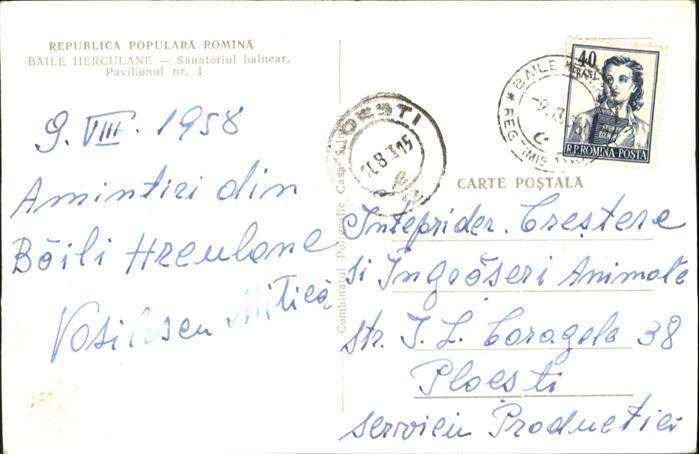 REPUBLICA POPULARĂ ROMÎNĂ
BĂILE HERCULANE — Sanatoriul balnear.
Pavilionul nr. 1
9. VIII. 1958
Amintiri din
Băili Hreulane
Vasilescu Mitică
Combinatul Poligrafic Casa
OEȘTI
BĂILE
REG. TIMIȘ
40
R.P. ROMINA POSTA
CARTE POȘTALĂ
Inteprider. Creștere
si Ingrășeri Animale
str. I. L. Caragale 38
Ploești
serviciu Productiei